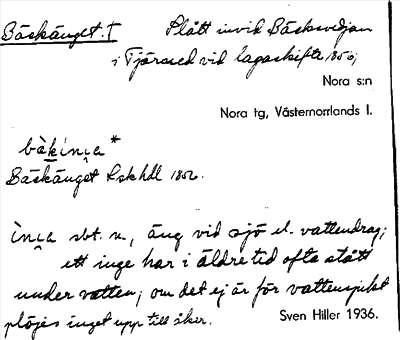 Bäskänget. I Slått invid Bäskvedjan
i Tjärsred vid lagaskifte 1850;
Nora s:n
Nora tg, Västernorrlands l.
Bäskänget Lskhdl 1850.
sbt. n., äng vid sjö el. vattendrag;
ett inge har i äldre tid ofta stått
under vatten; om det ej är för vattensjukt
plöjes inget upp till åker.
Sven Hiller 1936.